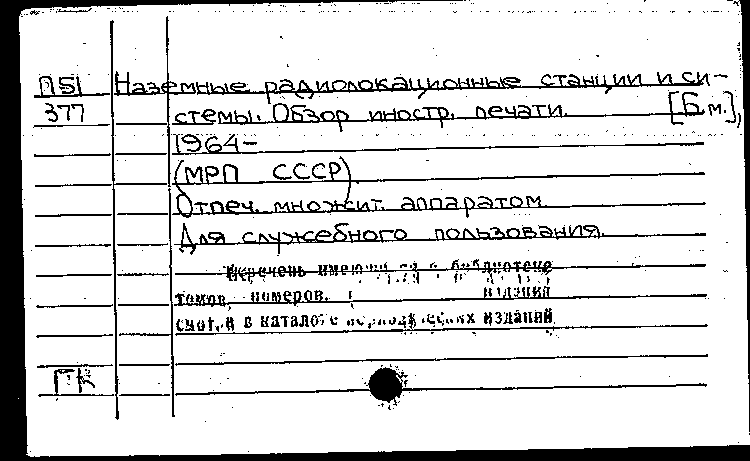 П51 Наземные радиолокационные станции и си-
377 стемы. Обзор иностр. печати. [Б.м.],
1964-
(МРП СССР)
Отпеч. множит. аппаратом.
Для служебного пользования.
Перечень имеющихся в библиотеке
томов, номеров, издания
смотри в каталоге периодических изданий
ГК